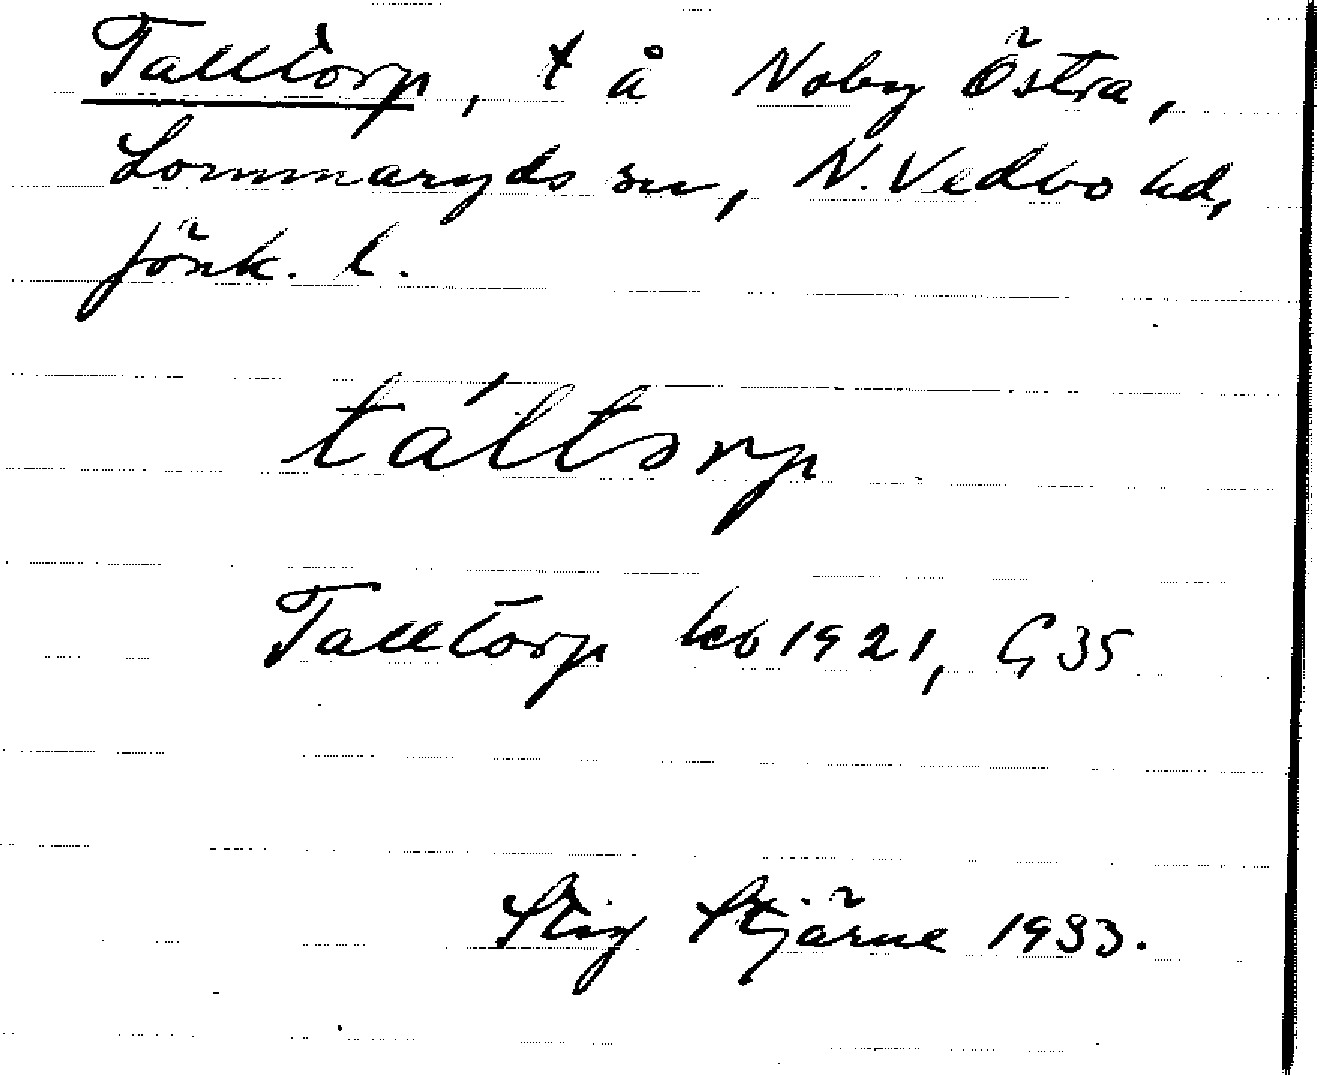 Talltorp, t å Noby Östra,
Lommaryds sn, N. Vedbo hd,
Jönk. l.
táltorp
Talltorp kb 1921, G 35
Stig Stjärne 1933.